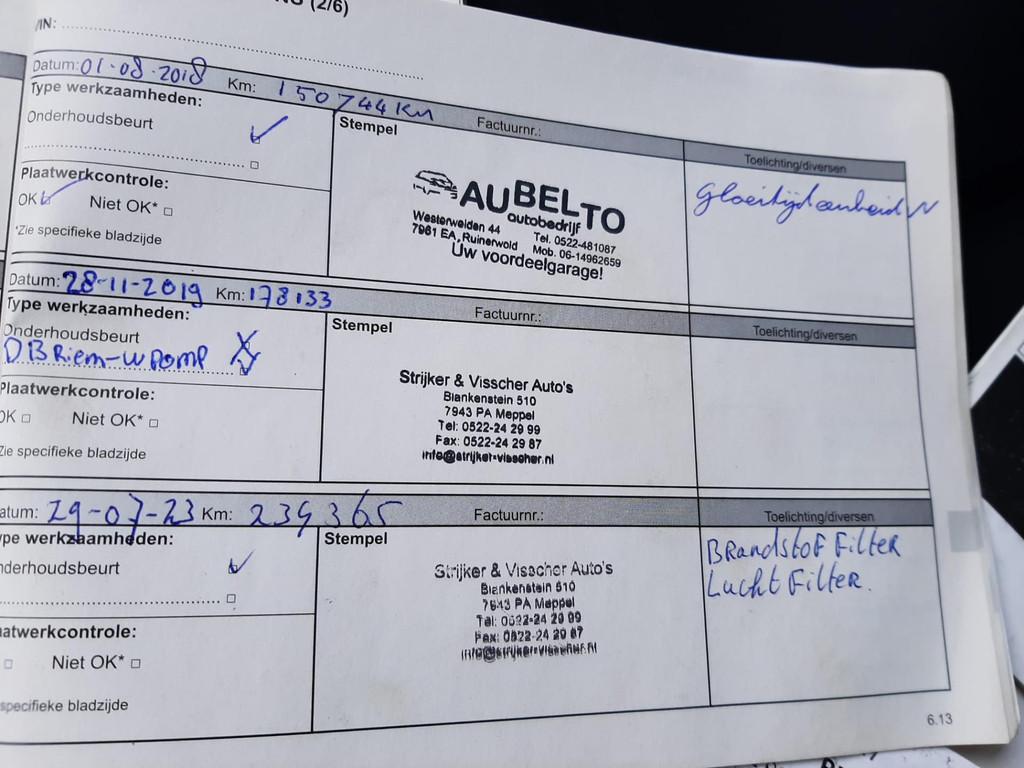 (2/6)
VIN:
Datum: 01-08-2018 Km: 150744 Km
Type werkzaamheden:
Onderhoudsbeurt
Stempel Factuurnr.:
Toelichting/diversen
Plaatwerkcontrole:
OK Niet OK*
*Zie specifieke bladzijde
AUBELTO
autobedrijf
Westerwelden 44 Tel. 0522-481087
7961 EA, Ruinerwold Mob. 06-14962659
Uw voordeelgarage!
Datum: 28-11-2019 Km: 178133
Type werkzaamheden:
Onderhoudsbeurt
DBRiem-WPomp
Stempel Factuurnr.:
Toelichting/diversen
Plaatwerkcontrole:
OK Niet OK*
Zie specifieke bladzijde
Strijker & Visscher Auto's
Blankenstein 510
7943 PA Meppel
Tel: 0522-24 29 99
Fax: 0522-24 29 87
info@strijker-visscher.nl
Datum: 29-07-23 Km: 239365
Type werkzaamheden:
Onderhoudsbeurt
Stempel Factuurnr.:
Toelichting/diversen
BRandstof Filter
Lucht Filter.
Plaatwerkcontrole:
Niet OK*
specifieke bladzijde
Strijker & Visscher Auto's
Blankenstein 510
7943 PA Meppel
Tel: 0522-24 29 99
Fax: 0522-24 29 87
info@strijker-visscher.nl
6.13